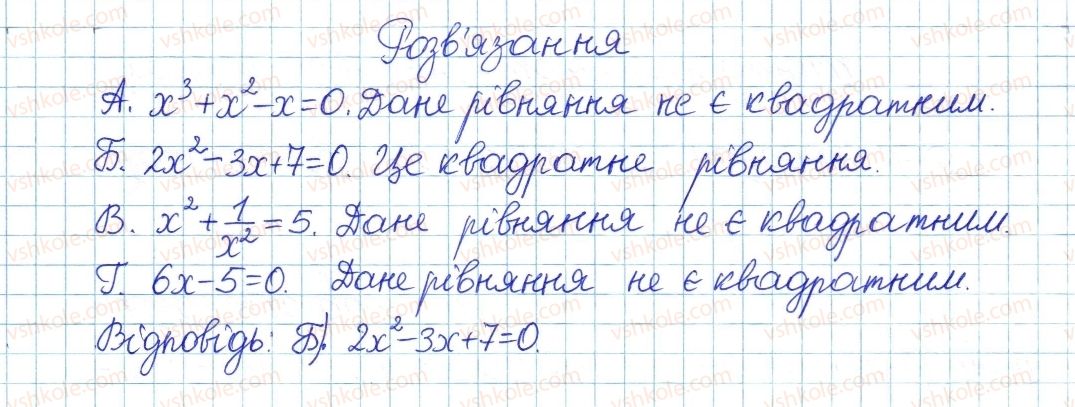 Розв'язання
А. x³+x²-x=0. Дане рівняння не є квадратним.
Б. 2x²-3x+7=0. Це квадратне рівняння.
В. x²+1/x²=5. Дане рівняння не є квадратним.
Г. 6x-5=0. Дане рівняння не є квадратним.
Відповідь: Б). 2x²-3x+7=0.